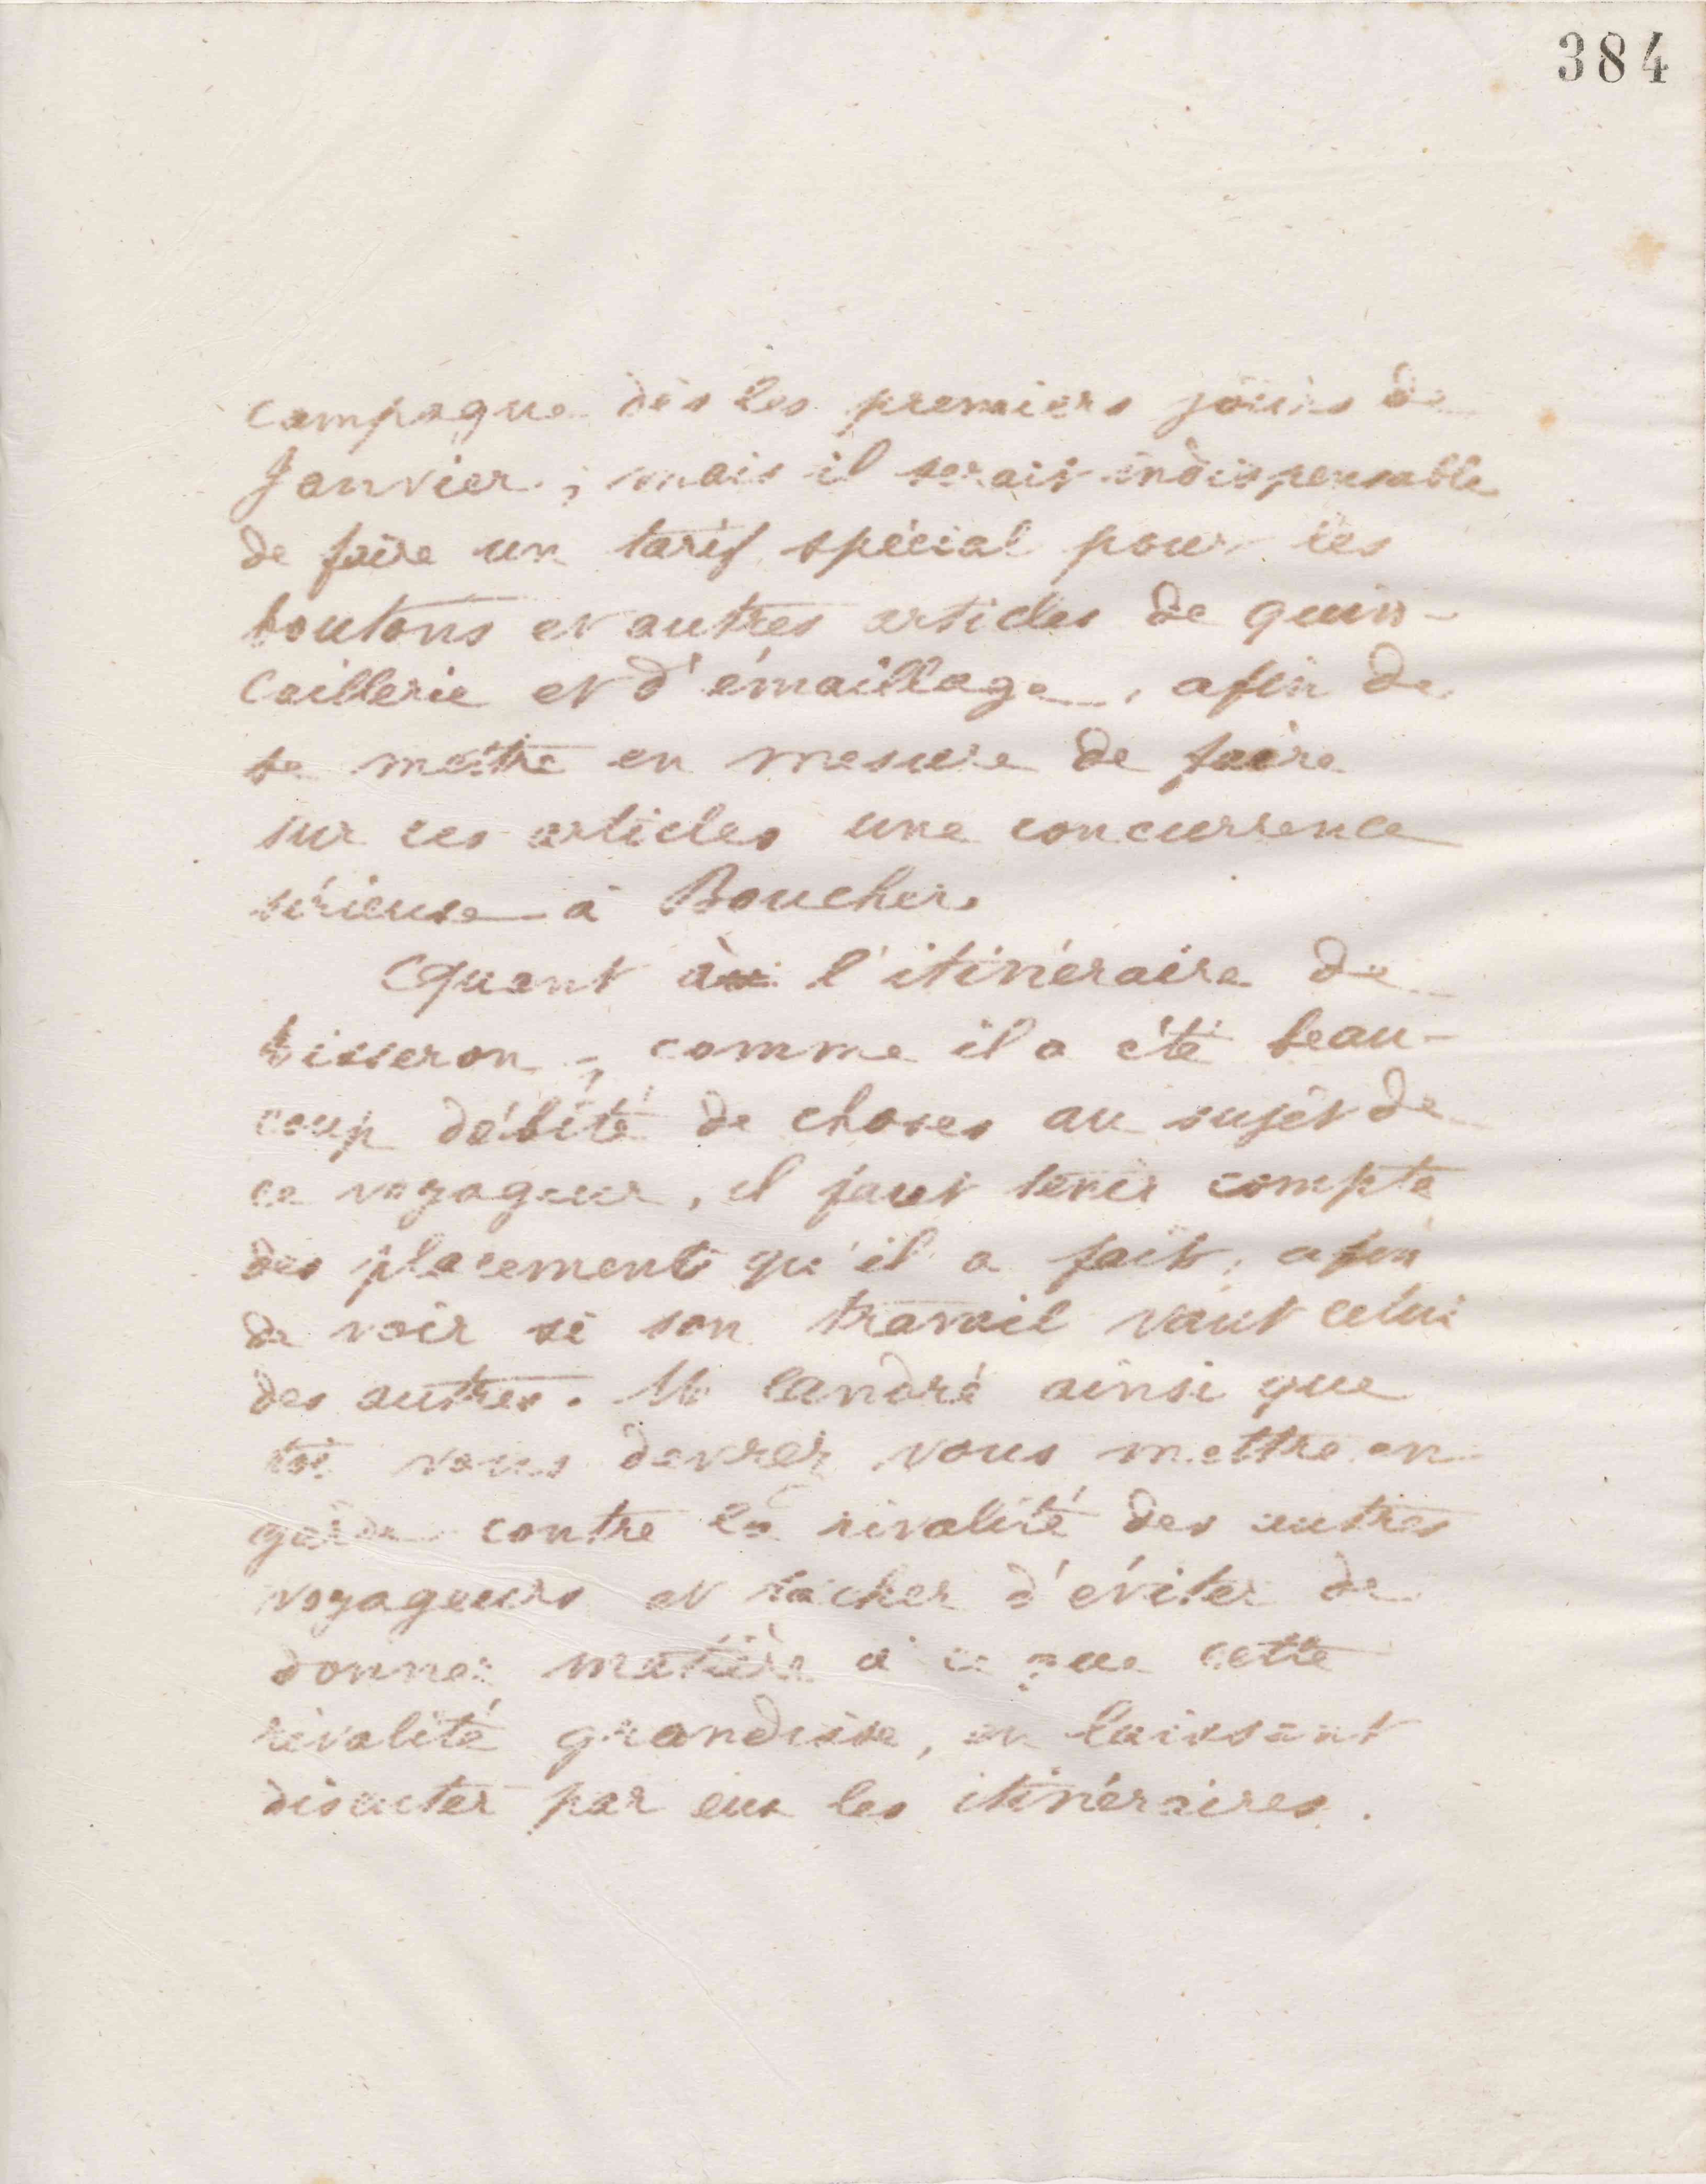 384
campagne dès les premiers jours de
Janvier, mais il serait indispensable
de faire un tarif spécial pour les
boutons et autres articles de quin-
caillerie et d'émaillage, afin de
se mettre en mesure de faire
sur ces articles une concurrence
sérieuse à Boucher.
Quant à l'itinéraire de
Tisseron, comme il a été beau-
coup débité de choses au sujet de
ce voyageur, il faut tenir compte
des placements qu'il a fait, afin
de voir si son travail vaut celui
des autres. Mr André ainsi que
toi vous devrez vous mettre en
garde contre la rivalité des autres
voyageurs et tâcher d'éviter de
donner matière à ce que cette
rivalité grandisse, en laissant
discuter par eux les itinéraires.